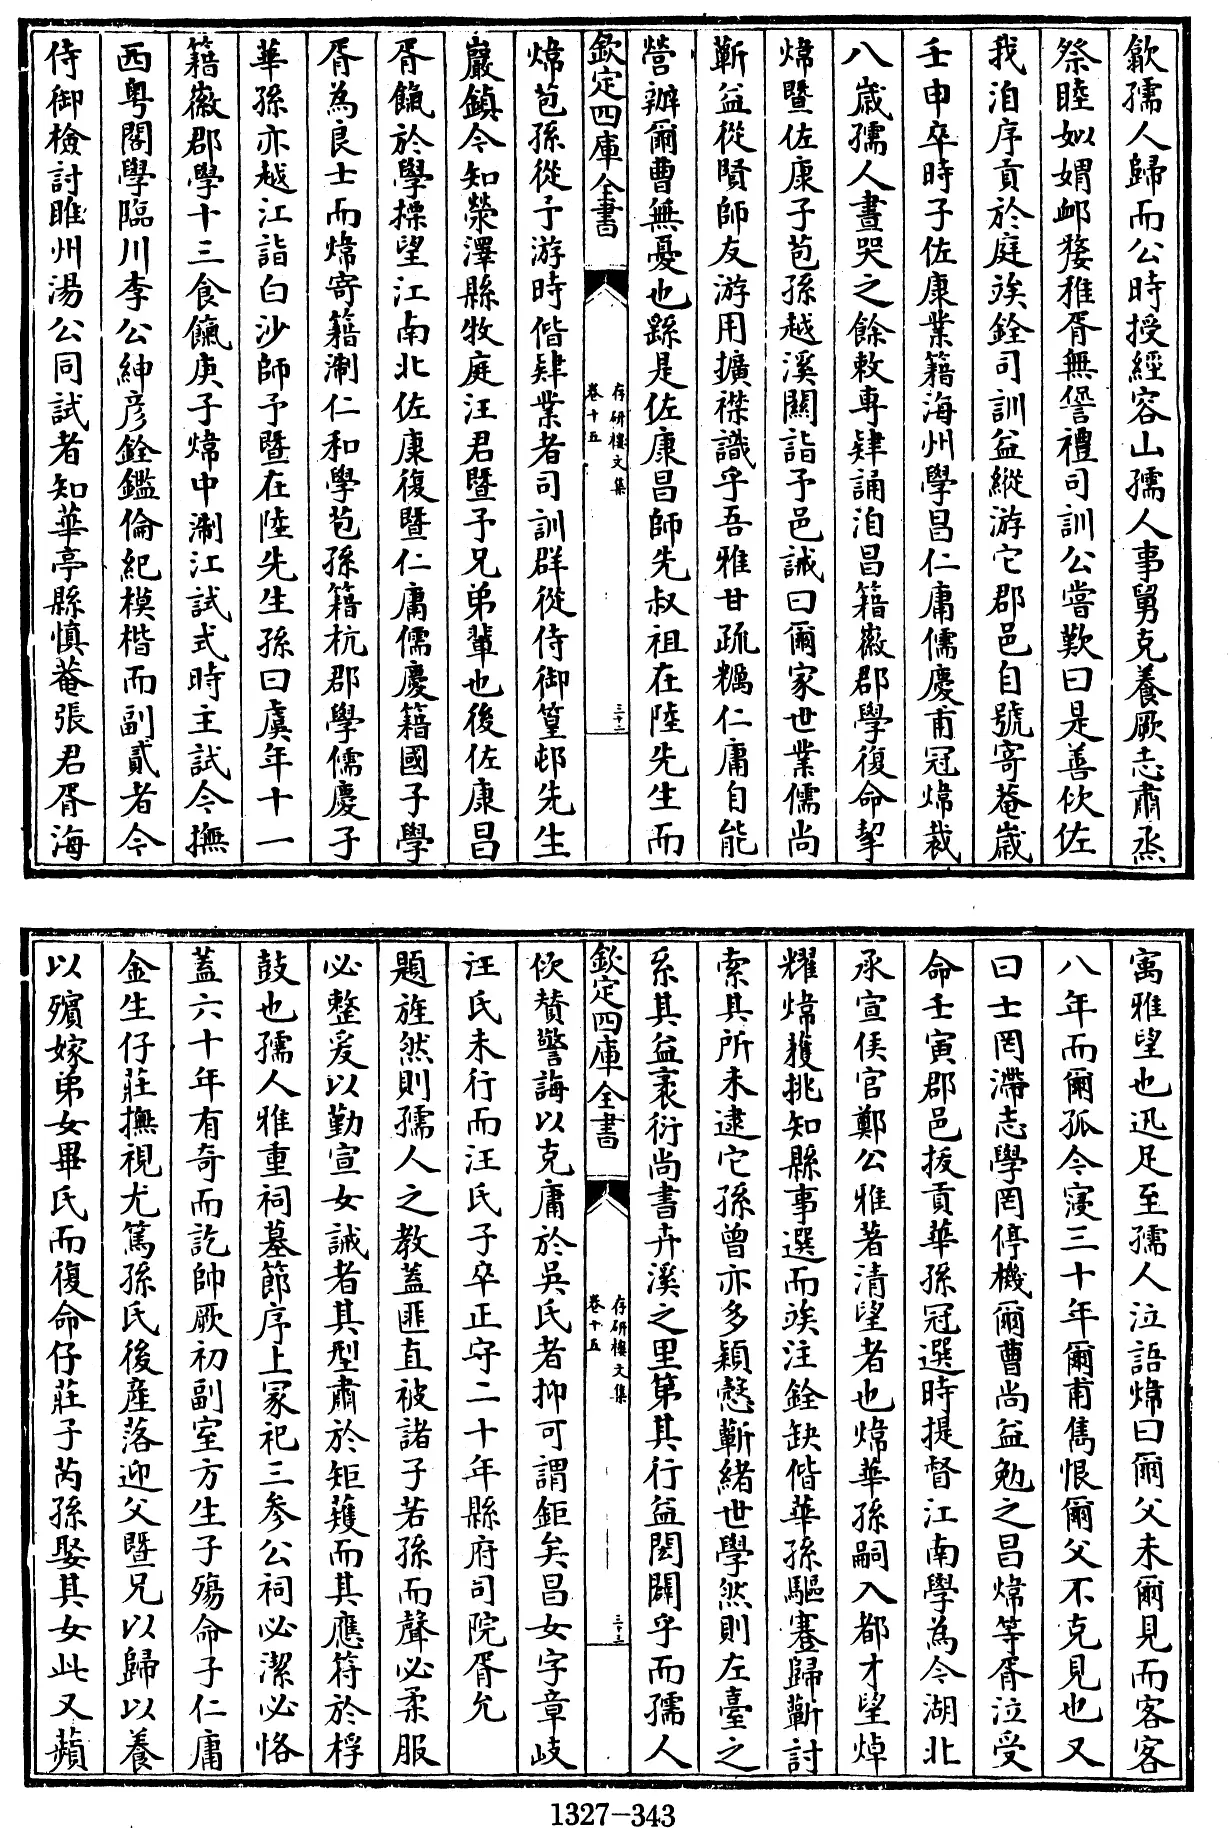 歙孺人歸而公時授經容山孺人事舅克養厥志肅烝
祭睦姒娣邮婺稚胥無諐禮司訓公嘗歎曰是善佽佐
我洎序貢於庭竢銓司訓益縱游它郡邑自號寄菴歲
壬申卒時子佐康業籍海州學昌仁庸儒慶甫冠煒裁
八歲孺人晝哭之餘敕專肄誦洎昌籍徽郡學復命挈
煒暨佐康子苞孫越溪關詣予邑誡曰爾家世業儒尚
蘄益從賢師友游用擴襟識乎吾雅甘疏糲仁庸自能
營辦爾曹無憂也繇是佐康昌師先叔祖在陸先生而
欽定四庫全書
存研樓文集
卷十五
三十二
煒苞孫從予游時偕肄業者司訓群從侍御篁邨先生
巖鎮令知滎澤縣牧庭汪君暨予兄弟輩也後佐康昌
胥餼於學摽望江南北佐康復暨仁庸儒慶籍國子學
胥為良士而煒寄籍浙仁和學苞孫籍杭郡學儒慶子
華孫亦越江詣白沙師予暨在陸先生孫曰虞年十一
籍徽郡學十三食餼庚子煒中浙江試式時主試今撫
西粵閣學臨川李公紳彥銓鑑倫紀模楷而副貳者今
侍御檢討睢州湯公同試者知華亭縣慎菴張君胥海
寓雅望也迅足至孺人泣語煒曰爾父未爾見而客客
八年而爾孤今寖三十年爾甫雋恨爾父不克見也又
曰士罔滯志學罔停機爾曹尚益勉之昌煒等胥泣受
命壬寅郡邑拔貢華孫冠選時提督江南學為今湖北
承宣侯官鄭公雅著清望者也煒華孫嗣入都才望焯
耀煒獲挑知縣事選而竢注銓缺偕華孫驅蹇歸蘄討
索其所未逮它孫曾亦多穎愨蘄緒世學然則左臺之
系其益袤衍尚書卉溪之里第其行益閎闢乎而孺人
欽定四庫全書
存研樓文集
卷十五
三十三
佽贊警誨以克庸於吳氏者抑可謂鉅矣昌女字章岐
汪氏未行而汪氏子卒正守二十年縣府司院胥允
題旌然則孺人之教蓋匪直被諸子若孫而聲必柔服
必整爰以勤宣女誡者其型肅於矩蒦而其應符於桴
鼓也孺人雅重祠墓節序上冢祀三參公祠必潔必恪
蓋六十年有奇而訖帥厥初副室方生子殤命子仁庸
金生仔莊撫視尤篤孫氏後産落迎父暨兄以歸以養
以殯嫁弟女畢氏而復命仔莊子芮孫娶其女此又蘋
1327-343